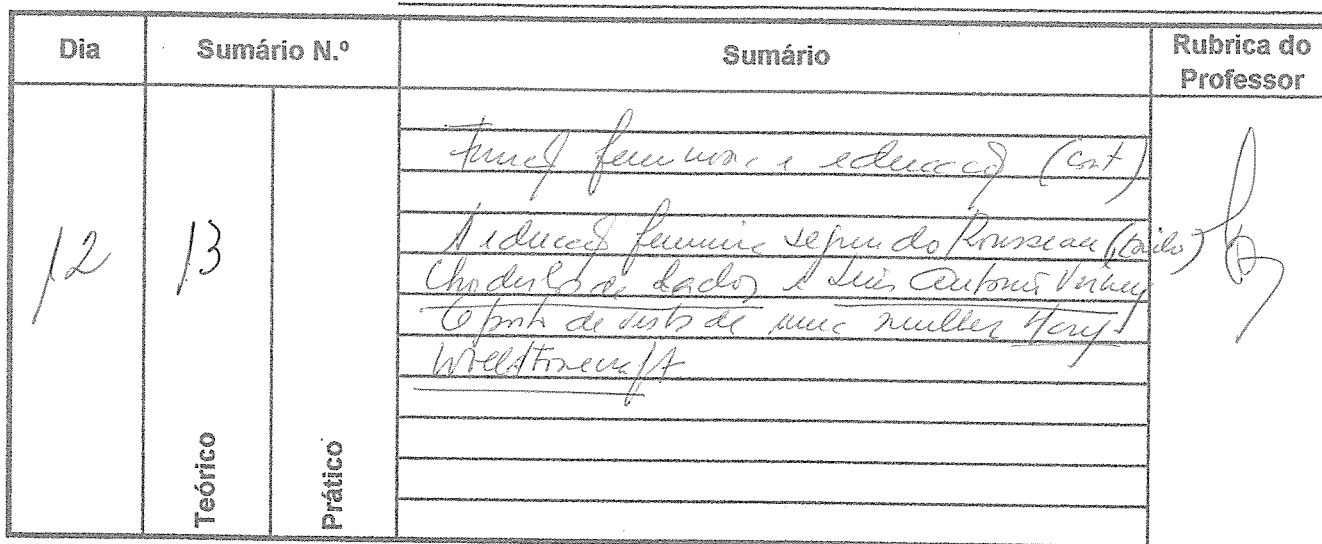 Dia
Sumário N.º
Sumário
Rubrica do
Professor
12
13
Teórico
Prático
Função feminina e educação (cont)
A educação feminina segundo Rousseau
Choderlos de Laclos e Luís António Verney
O ponto de vista de uma mulher Mary
Wollstonecraft